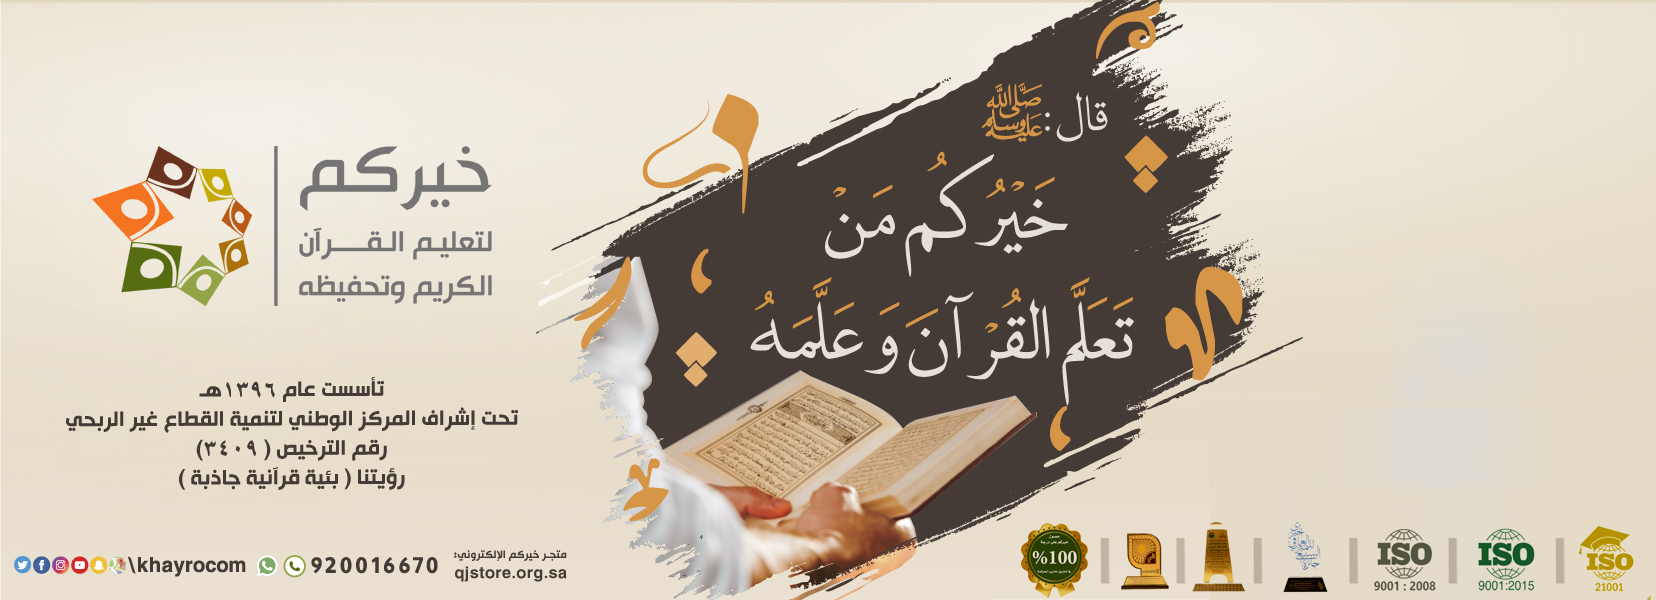 قال: ﷺ
خَيْرُكُم مَنْ
تَعَلَّم القُرْآنَ وَعَلَّمَهُ
خيركم
لتعليم القرآن
الكريم وتحفيظه
تأسست عام ١٣٩٦هـ
تحت إشراف المركز الوطني لتنمية القطاع غير الربحي
رقم الترخيص ( ٣٤٠٩)
رؤيتنا ( بئية قرآنية جاذبة )
\khayrocom
920016670
متجر خيركم الإلكتروني:
qjstore.org.sa
%100
ISO
9001 : 2008
ISO
9001:2015
ISO
21001